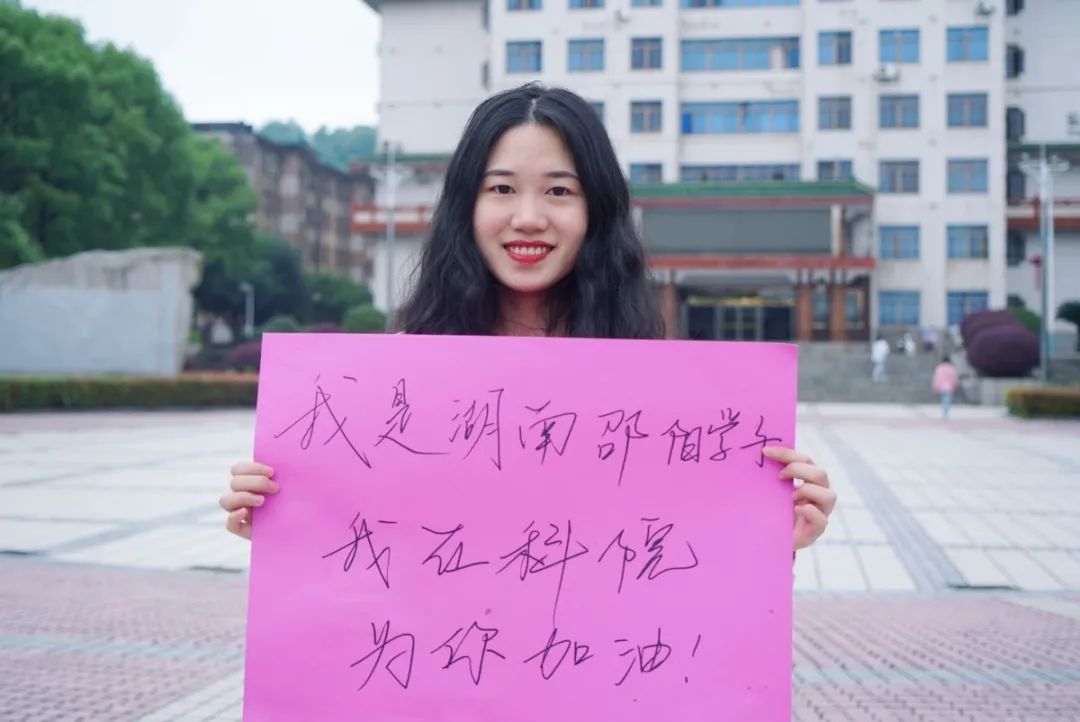 我是湖南邵阳学子
我在科院
为你加油!